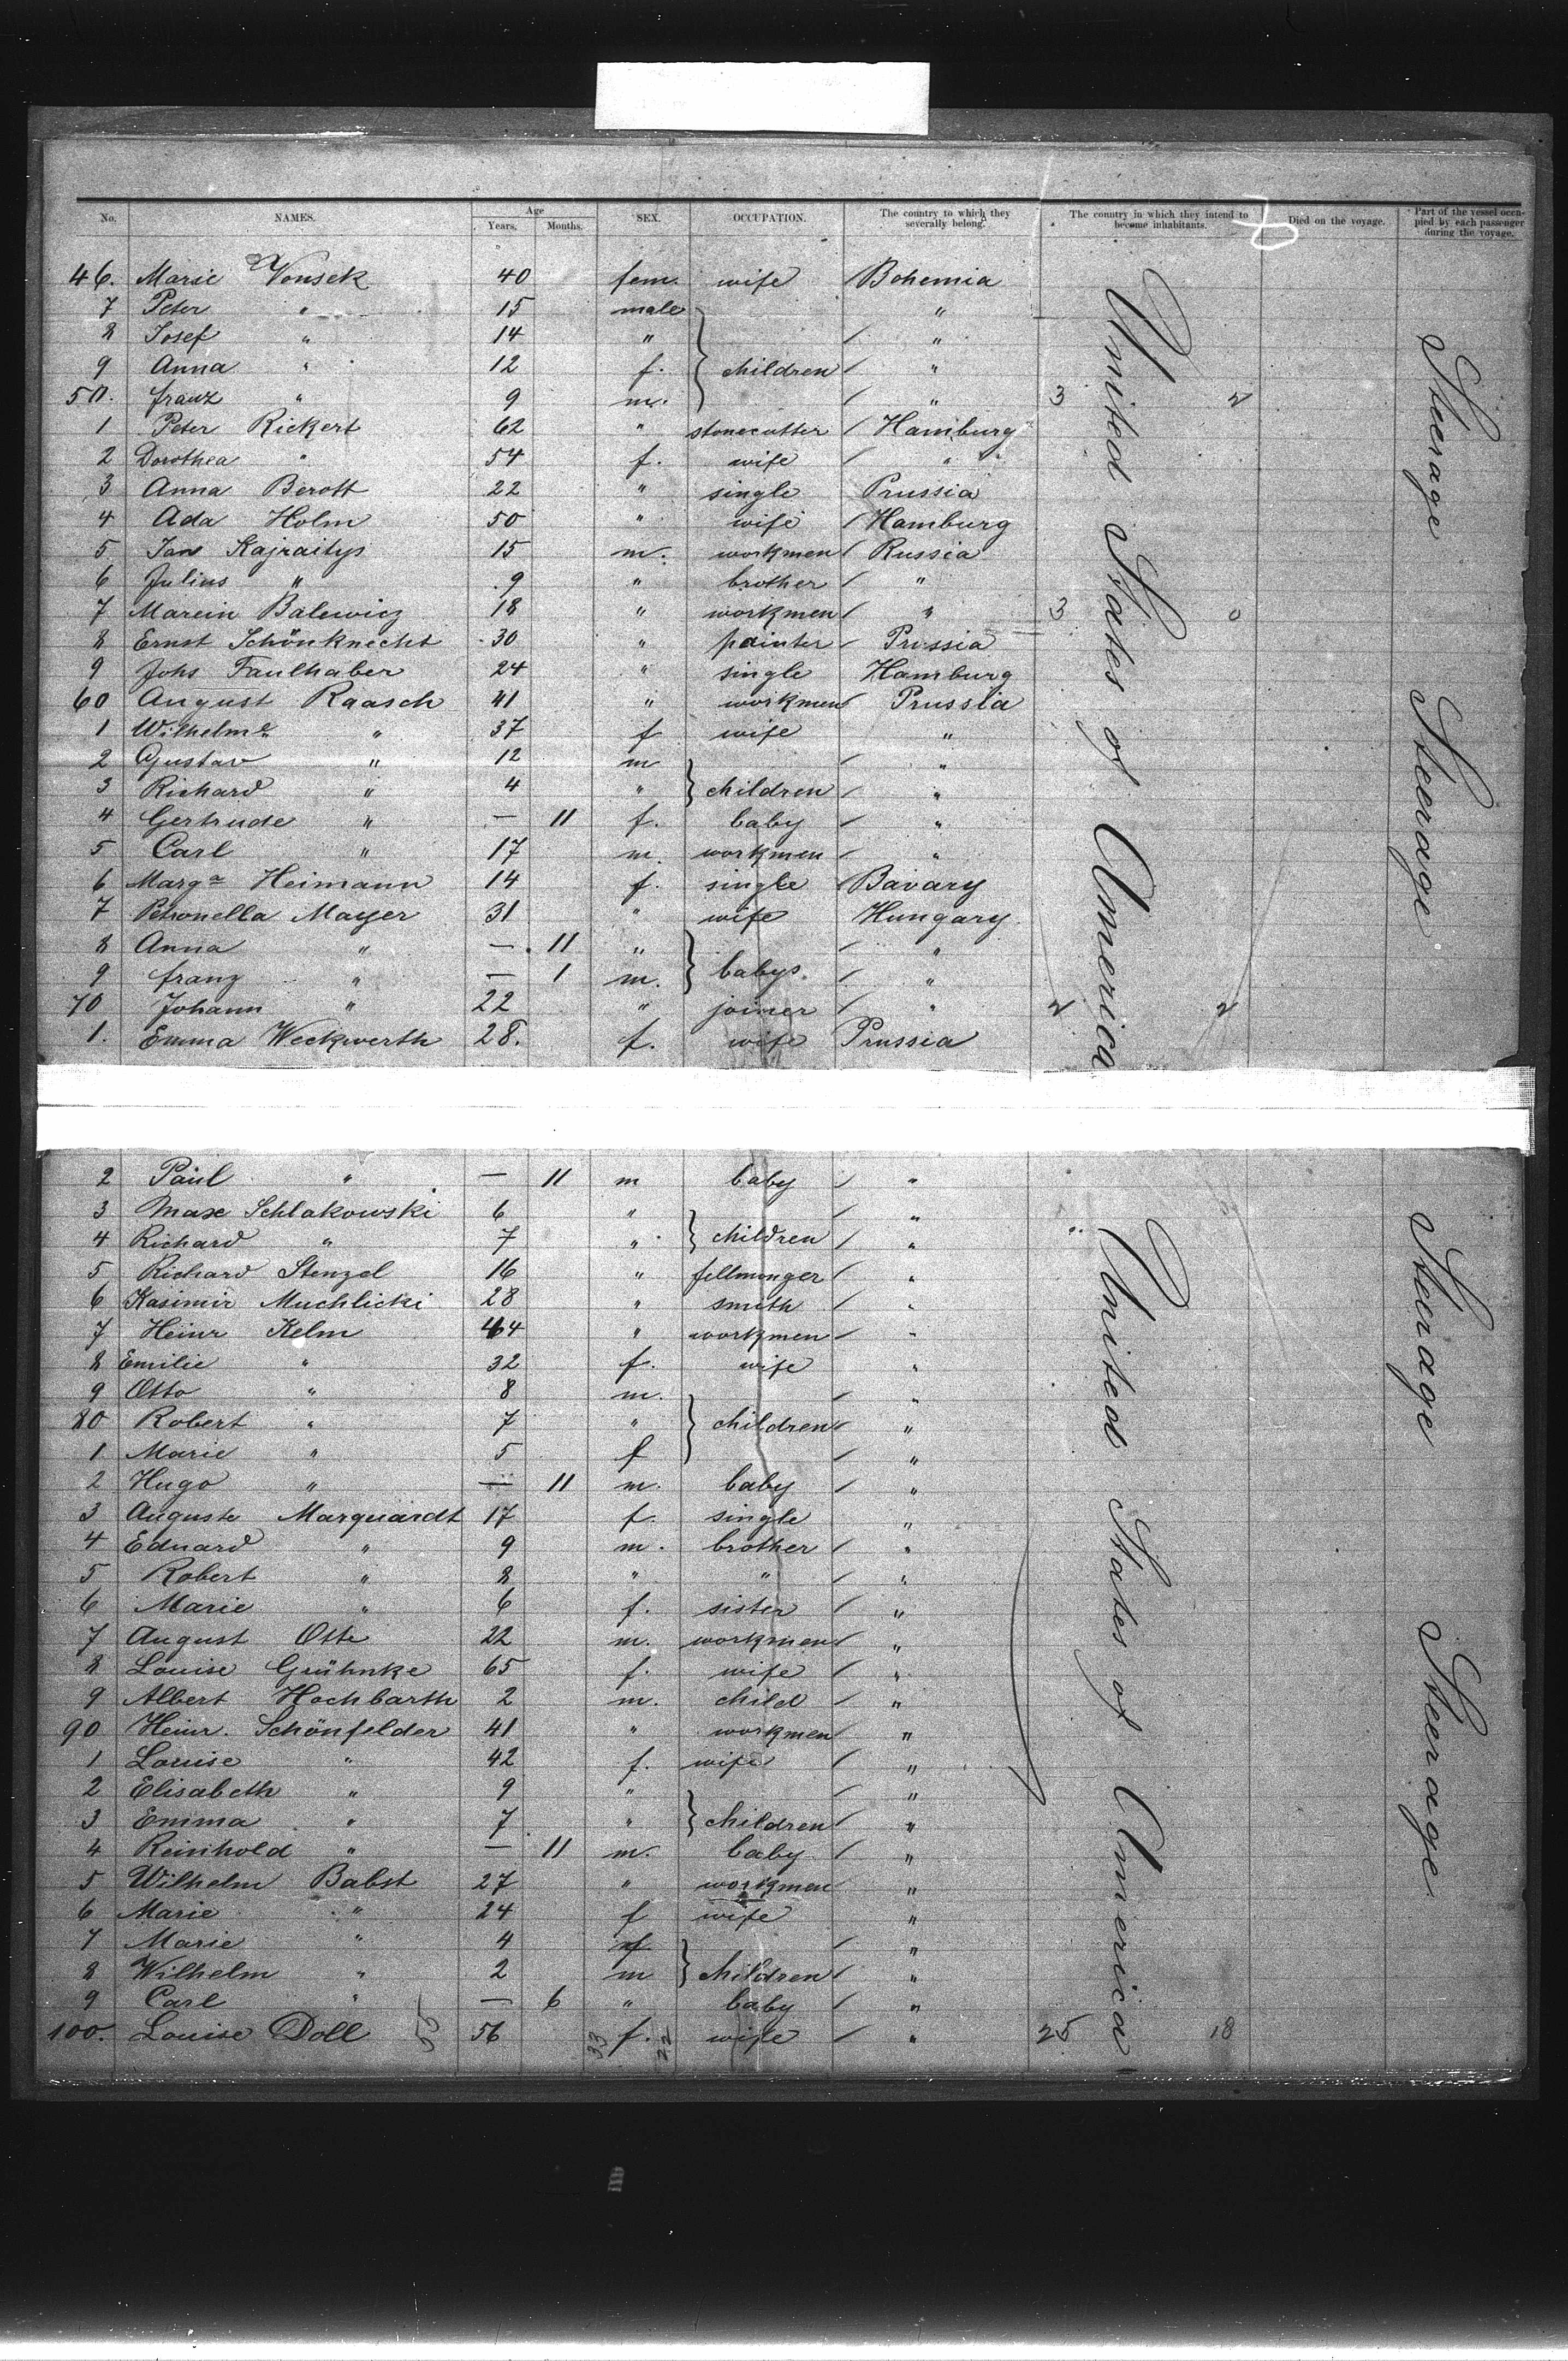 No. NAMES. Age Years. Months. SEX. OCCUPATION. The country to which they severally belong. The country in which they intend to become inhabitants. Died on the voyage. Part of the vessel occupied by each passenger during the voyage.
46. Marie Vonsek 40 fem. wife Bohemia
7 Peter " 15 male "
8 Josef " 14 " "
9 Anna " 12 f. children "
50. franz " 9 m. " 3 2
1 Peter Rickert 62 " stonecutter Hamburg
2 Dorothea " 54 f. wife "
3 Anna Berott 22 " single Prussia
4 Ada Holm 50 " wife Hamburg
5 Jan Kajraitys 15 m. workmen Russia
6 Julius " 9 " brother "
7 Marcin Balewicz 18 " workmen " 3 0
8 Ernst Schönknecht 30 " painter Prussia
9 Johs Faulhaber 24 " single Hamburg
60 August Raasch 41 " workmen Prussia
1 Wilhelme " 37 f wife "
2 Gustav " 12 m "
3 Richard " 4 " children "
4 Gertrude " — 11 f. baby "
5 Carl " 17 m. workmen "
6 Marga Heimann 14 f. single Bavary
7 Petronella Mayer 31 " wife Hungary
8 Anna " — 11 " "
9 franz " — 1 m. babys "
70 Johann " 22 " joiner " 2 2
1. Emma Weckwerth 28. f. wife Prussia
United States of America
Steerage Steerage
2 Paul " — 11 m baby "
3 Max Schlakowski 6 " "
4 Richard " 7 " children "
5 Richard Stenzel 16 " fellmonger "
6 Kasimir Muchlicki 28 " smith "
7 Heinr Kelm 44 " workmen "
8 Emilie " 32 f. wife "
9 Otto " 8 m. "
80 Robert " 7 " children "
1 Marie " 5 f "
2 Hugo " — 11 m. baby "
3 Auguste Marquardt 17 f. single "
4 Eduard " 9 m. brother "
5 Robert " 8 " " "
6 Marie " 6 f. sister "
7 August Otte 22 m. workmen "
8 Louise Grühnke 65 f. wife "
9 Albert Hochbarth 2 m. child "
90 Heinr. Schönfelder 41 " workmen "
1 Louise " 42 f. wife "
2 Elisabeth " 9 " "
3 Emma " 7 " children "
4 Reinhold " — 11 m. baby "
5 Wilhelm Babst 27 " workmen "
6 Marie " 24 f wife "
7 Marie " 4 f "
8 Wilhelm " 2 m children "
9 Carl " — 6 " baby "
100. Louise Doll 55 56 33 f. 22 wife " 25 18
United States of America
Steerage Steerage